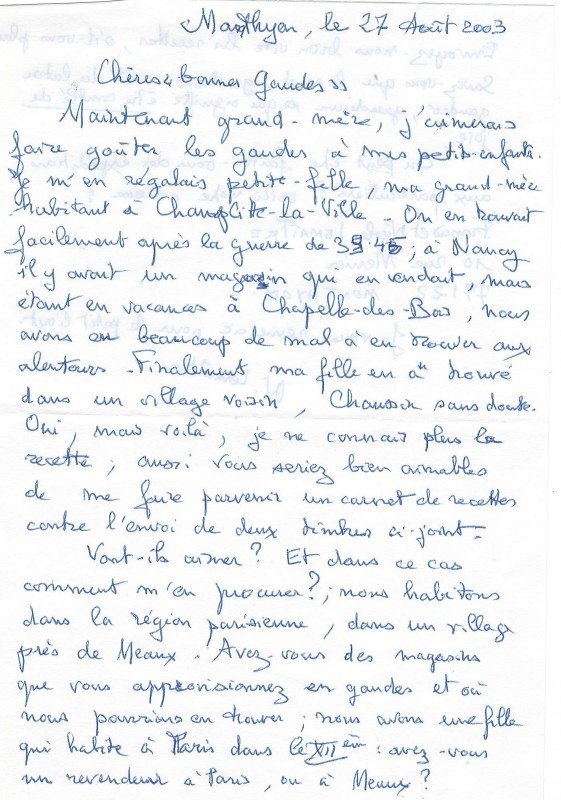 Marthyon, le 27 Août 2003
Chères & bonnes Gaudes »
Maintenant grand-mère, j'aimerais
faire goûter les gaudes à mes petits-enfants.
Je m'en régalais petite-fille, ma grand-mère
habitant à la-Ville. On en trouvait
facilement après la guerre de 39-45; à Nancy
il y avait un magasin qui en vendait, mais
étant en vacances à Chapelle-des-Bois, nous
avons eu beaucoup de mal à en trouver aux
alentours. Finalement ma fille en a trouvé
dans un village voisin, Chaussin sans doute.
Oui, mais voilà, je ne connais plus la
recette; aussi vous seriez bien aimables
de me faire parvenir un carnet de recettes
contre l'envoi de deux timbres ci-joint.
Vont-ils aimer? Et dans ce cas
comment m'en procurer?; nous habitons
dans la région parisienne, dans un village
près de Meaux. Avez-vous des magasins
que vous approvisionnez en gaudes et où
nous pourrions en trouver; nous avons une fille
qui habite à Paris dans le XII ème : avez-vous
un revendeur à Paris, ou à Meaux?